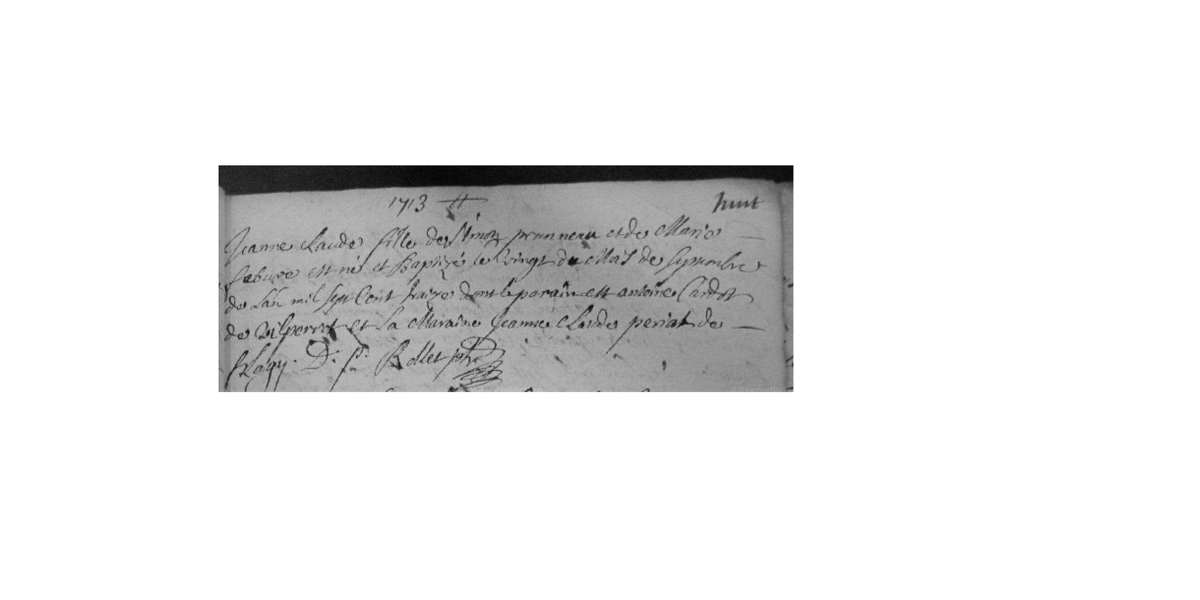 1713 huit
Jeanne Claude fille de Simon prunneau et de Marie
Lebure est né et Baptizé le vingt du Mois de septembre
de Lan mil sept Cent traize dont le parain est antoine Cardot
de vilperrot et la Maraine Jeanne Claude periat de
D. f. Rollet